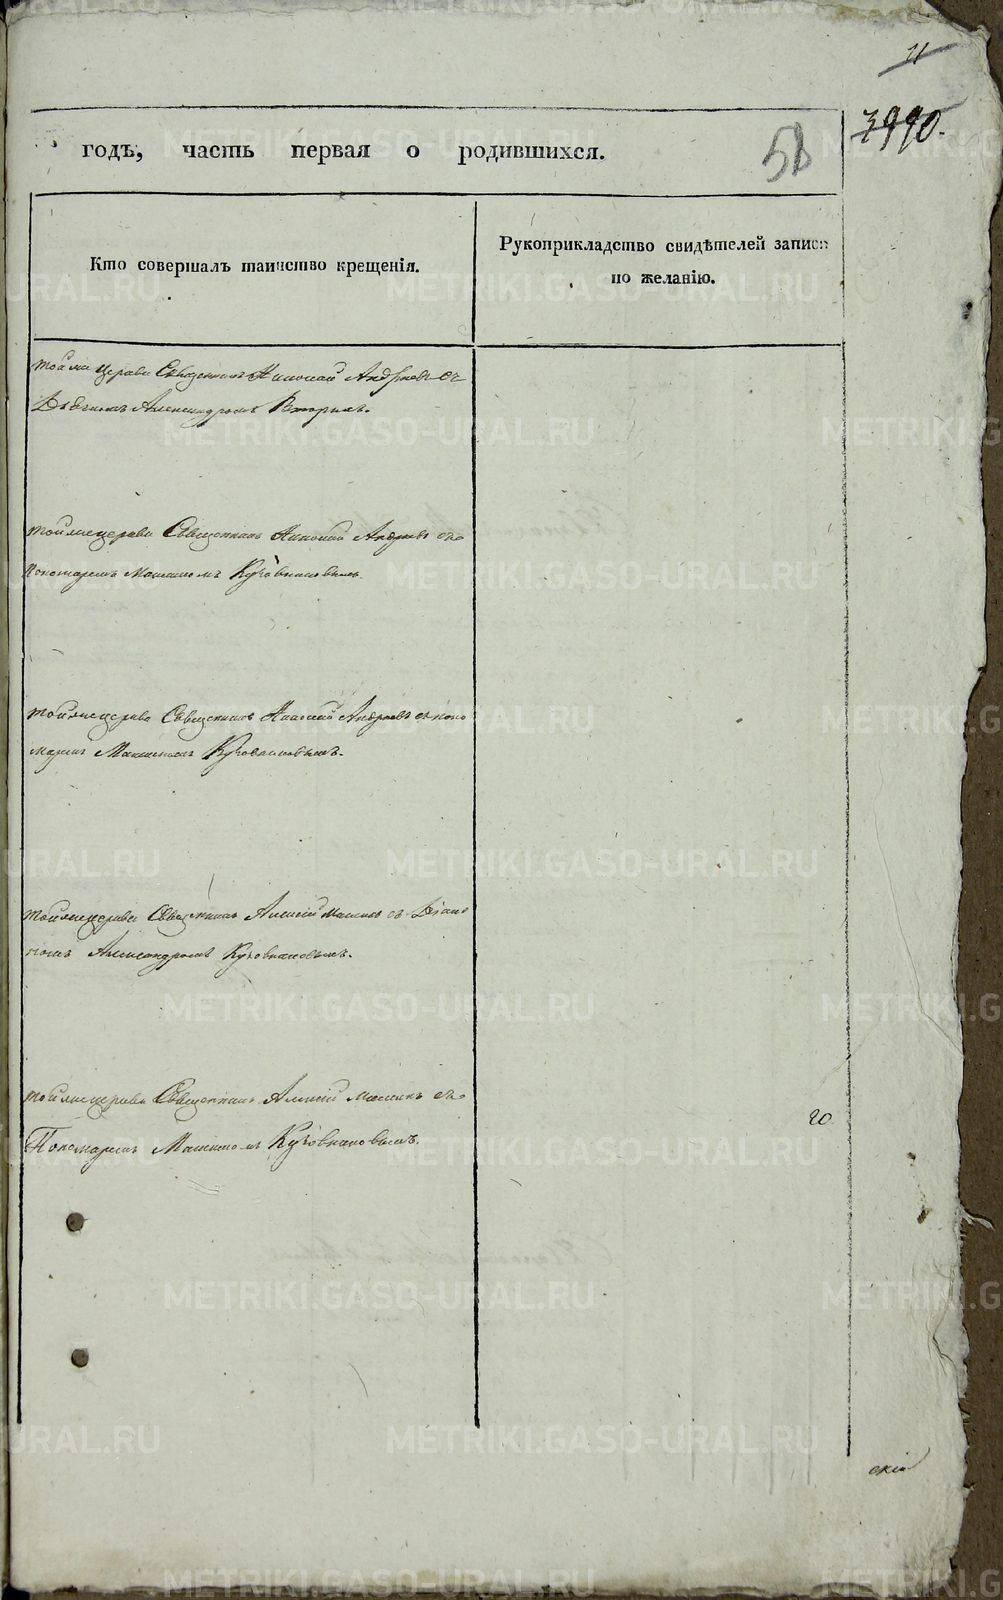 11
3990.
годъ, часть первая о родившихся.
58
Кто совершалъ таинство крещенія.
Рукоприкладство свидѣтелей записи
по желанію.
той же церкви Священникъ Николай Андреевъ съ
Александромъ
тойже церкви Священникъ Николай Андреевъ съ
пономаремъ Кузовниковымъ.
тойже церкви Священникъ Николай Андреевъ съ поно
маремъ Кузовниковымъ.
тойже церкви Священникъ Алексій съ Діако
номъ Александромъ Кузовниковымъ.
тойже церкви Священникъ Алексій съ
Пономаремъ Кузовниковымъ.
20
METRIKI.GASO-URAL.RU